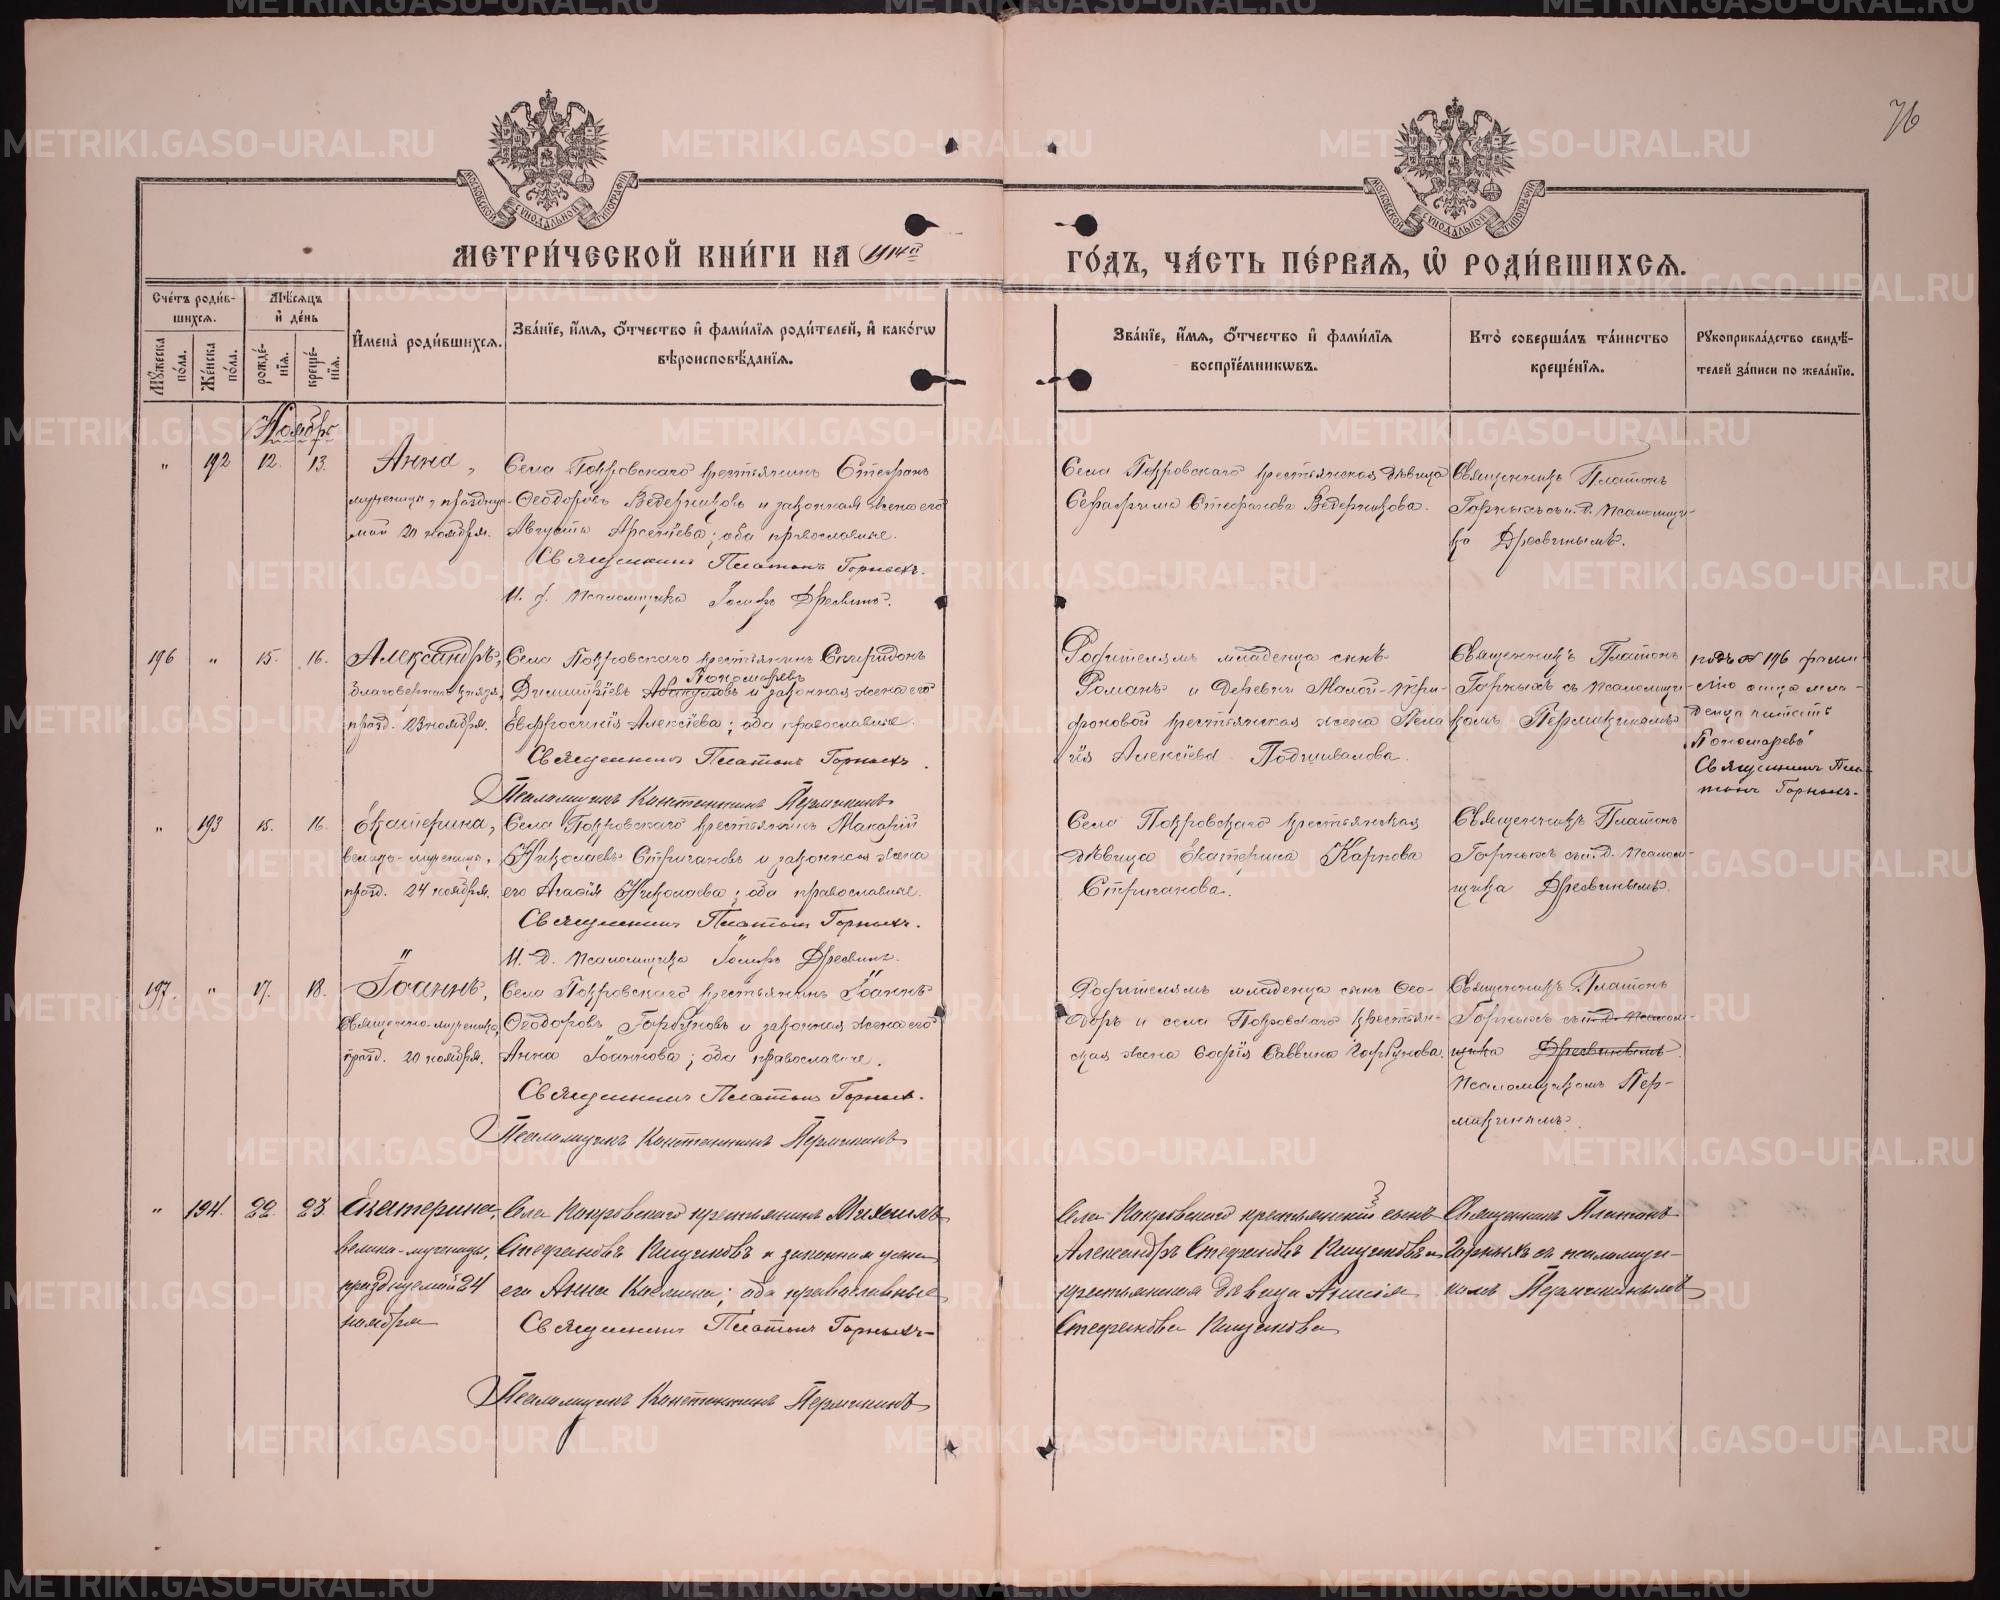 76
МОСКОВСКОЙ СѴНОДАЛЬНОЙ ТИПОГРАФИИ
МОСКОВСКОЙ СѴНОДАЛЬНОЙ ТИПОГРАФИИ
МЕТРИ́ЧЕСКОЙ КНИ́ГИ НА 1914й ГО́ДЪ, ЧА́СТЬ ПЕ́РВАЯ, Ѡ РОДИ́ВШИХСЯ.
Сче́тъ роди́в-
шихся.
Мѣ́сяцъ
и де́нь
Мꙋ́жеска по́ла.
Же́нска по́ла.
рожде́-
нїя.
креще́-
нїя.
Имена̀ роди́вшихся.
Зва́нїе, и́мя, ѻ҆́тчество и фами́лїя роди́телей, и како́гѡ
вѣроисповѣ́данїя.
Зва́нїе, и́мя, ѻ҆́тчество и фами́лїя
воспрїе́мникѡвъ.
Кто̀ соверша́лъ та́инство
креще́нїя.
Рꙋкоприкла́дство свидѣ́-
телей за́писи по жела́нїю.
Ноябрь
" 192 12. 13. Анна,
мученицы, празднуе-
мой 20 ноября.
Села Покровскаго крестьянинъ Стефанъ
Ѳеодоровъ Ведерниковъ и законная жена его
Августа Арсенiева; оба православные.
Священникъ Платонъ Горныхъ.
И. д. псаломщика Iосифъ Дресвинъ.
Села Покровскаго крестьянская дѣвица
Серафима Стефанова Ведерникова.
Священникъ Платонъ
Горныхъ съ и. д. псаломщи-
ка Дресвинымъ.
196 " 15. 16. Александръ,
благовернаго князя,
празд. 23 ноября.
Села Покровскаго крестьянинъ Спиридонъ
Пономаревъ
Димитрiевъ и законная жена его
Евфросинiя Алексiева; оба православные.
Священникъ Платонъ Горныхъ.
Псаломщикъ Константинъ Пермикинъ
Родителямъ младенца сынъ
Романъ и деревни Малой-Три-
фоновой крестьянская жена Пела
гiя Алексiева Подшивалова.
Священникъ Платонъ
Горныхъ съ псаломщи-
комъ Пермикинымъ
подъ № 196 фами-
лiю отца мла-
денца читать
"Пономаревъ"
Священникъ Пла-
тонъ Горныхъ.
" 193 15. 16. Екатерина,
велико-мученицы,
празд. 24 ноября.
Села Покровскаго крестьянинъ Макарiй
Николаевъ Стригановъ и законная жена
его Агафiя Николаева; оба православные.
Священникъ Платонъ Горныхъ.
И. д. псаломщика Iосифъ Дресвинъ.
Села Покровскаго крестьянская
дѣвица Екатерина Карпова
Стриганова.
Священникъ Платонъ
Горныхъ съ и. д. псалом-
щика Дресвинымъ.
197. " 17. 18. Iоаннъ,
священно-мученика,
празд. 20 ноября.
Села Покровскаго крестьянинъ Iоаннъ
Ѳеодоровъ Горбуновъ и законная жена его
Анна Iоаннова; оба православные.
Священникъ Платонъ Горныхъ.
Псаломщикъ Константинъ Пермикинъ
Родителямъ младенца сынъ Ѳео-
доръ и села Покровскаго крестьян-
ская жена Софiя Саввина Горбунова.
Священникъ Платонъ
Горныхъ съ и. д. псалом-
щика Дресвинымъ.
псаломщикомъ Пер-
микинымъ.
" 194. 22. 23. Екатерина,
велико-мученицы,
празднуемой 24
ноября
Села Покровскаго крестьянинъ Михаилъ
Стефановъ и законная жена
его Анна; оба православные
Священникъ Платонъ Горныхъ
Псаломщикъ Константинъ Пермикинъ
Села Покровскаго крестьянскiй сынъ
Александръ Стефановъ и
крестьянская дѣвица Анисiя
Стефанова
Священникъ Платонъ
Горныхъ съ псаломщи-
комъ Пермикинымъ
METRIKI.GASO-URAL.RU